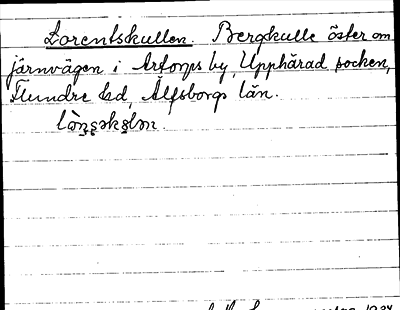 Lorentskullen. Bergkulle öster om
järnvägen i Artorps by, Upphärad socken,
Flundre hd, Älfsborgs län.